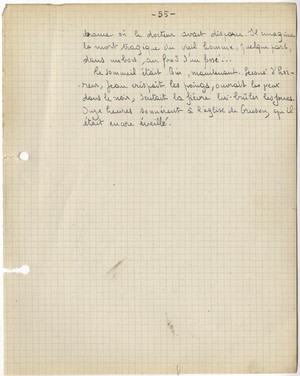 -55-
drame où le docteur avait disparu. Il imagina
la mort tragique du vieil homme, quelque part,
dans un bois, au fond d'un fossé...
Le sommeil était loin, maintenant. Secoué d'hor-
reur, Jean crispait les poings, ouvrait les yeux
dans le noir, sentait la fièvre lui brûler les joues.
Onze heures sonnèrent à l'église de Gruson, qu'il
était encore éveillé.